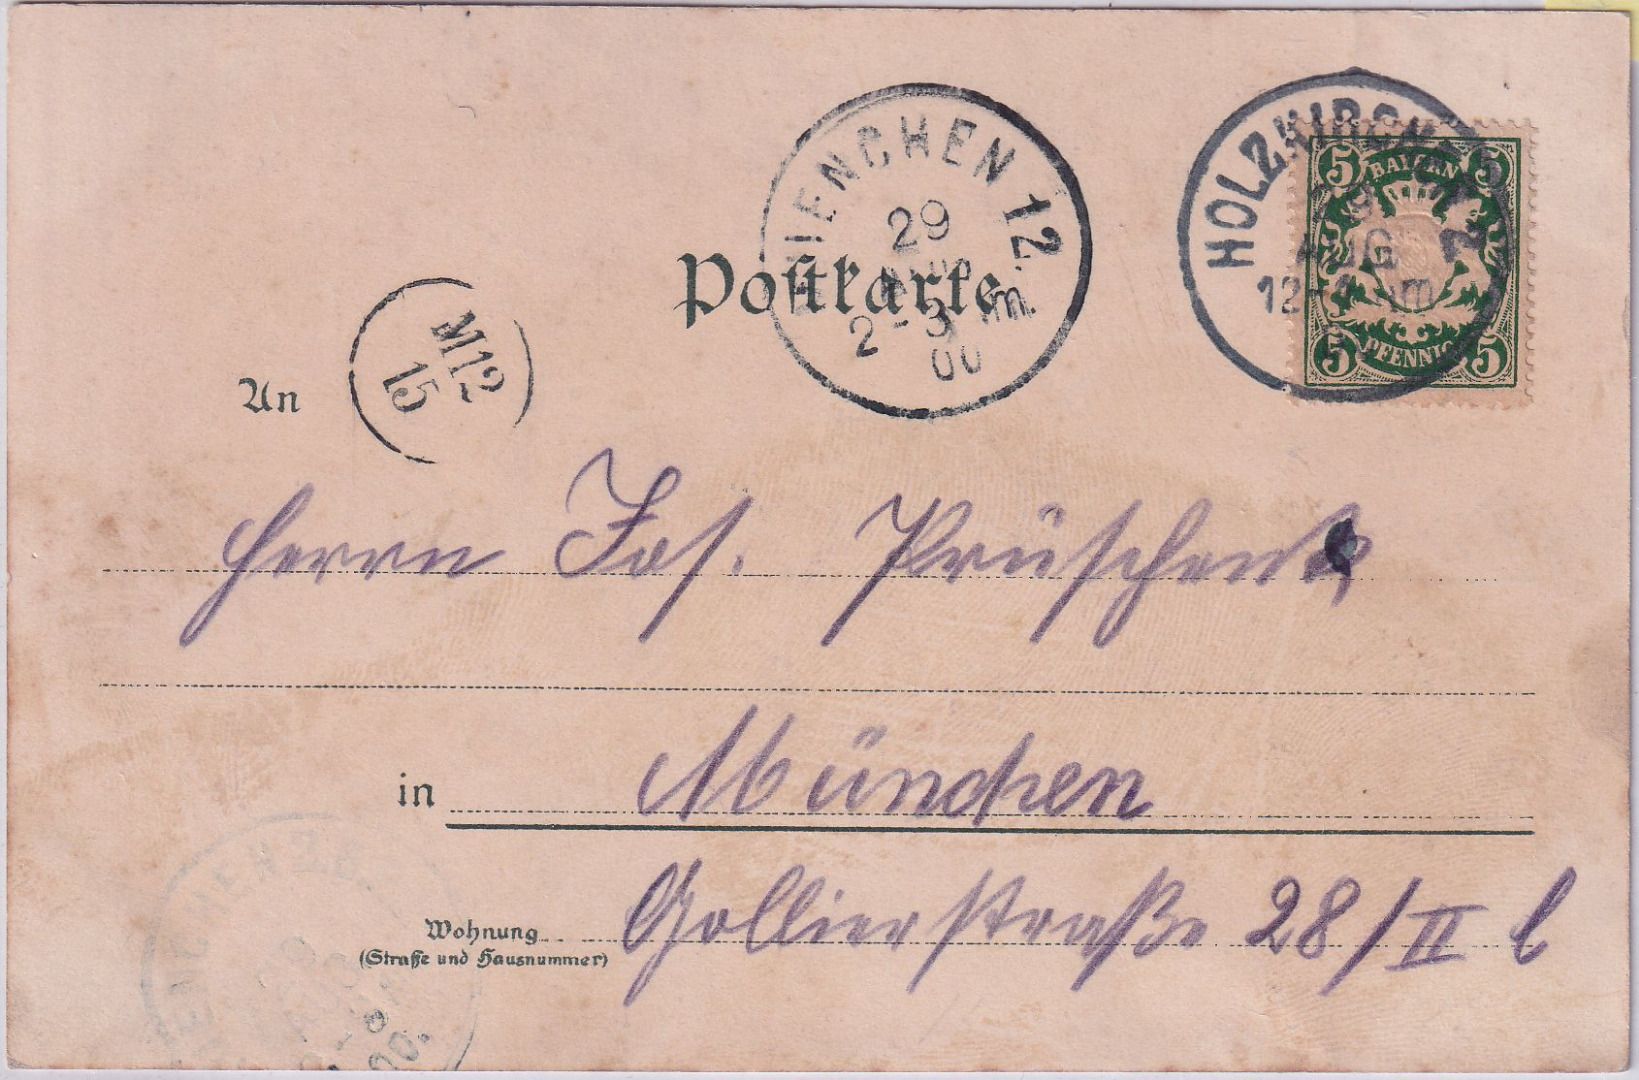 MUENCHEN 12.
29
2-3 Nm
00
HOLZKIRCHEN 2
29
AUG
12-1 Nm
5 BAYERN 5
5 PFENNIG 5
Postkarte
M12
15
An
Herrn Jos. Prüschenk
in München
Wohnung Gollierstraße 28/II l
(Straße und Hausnummer)